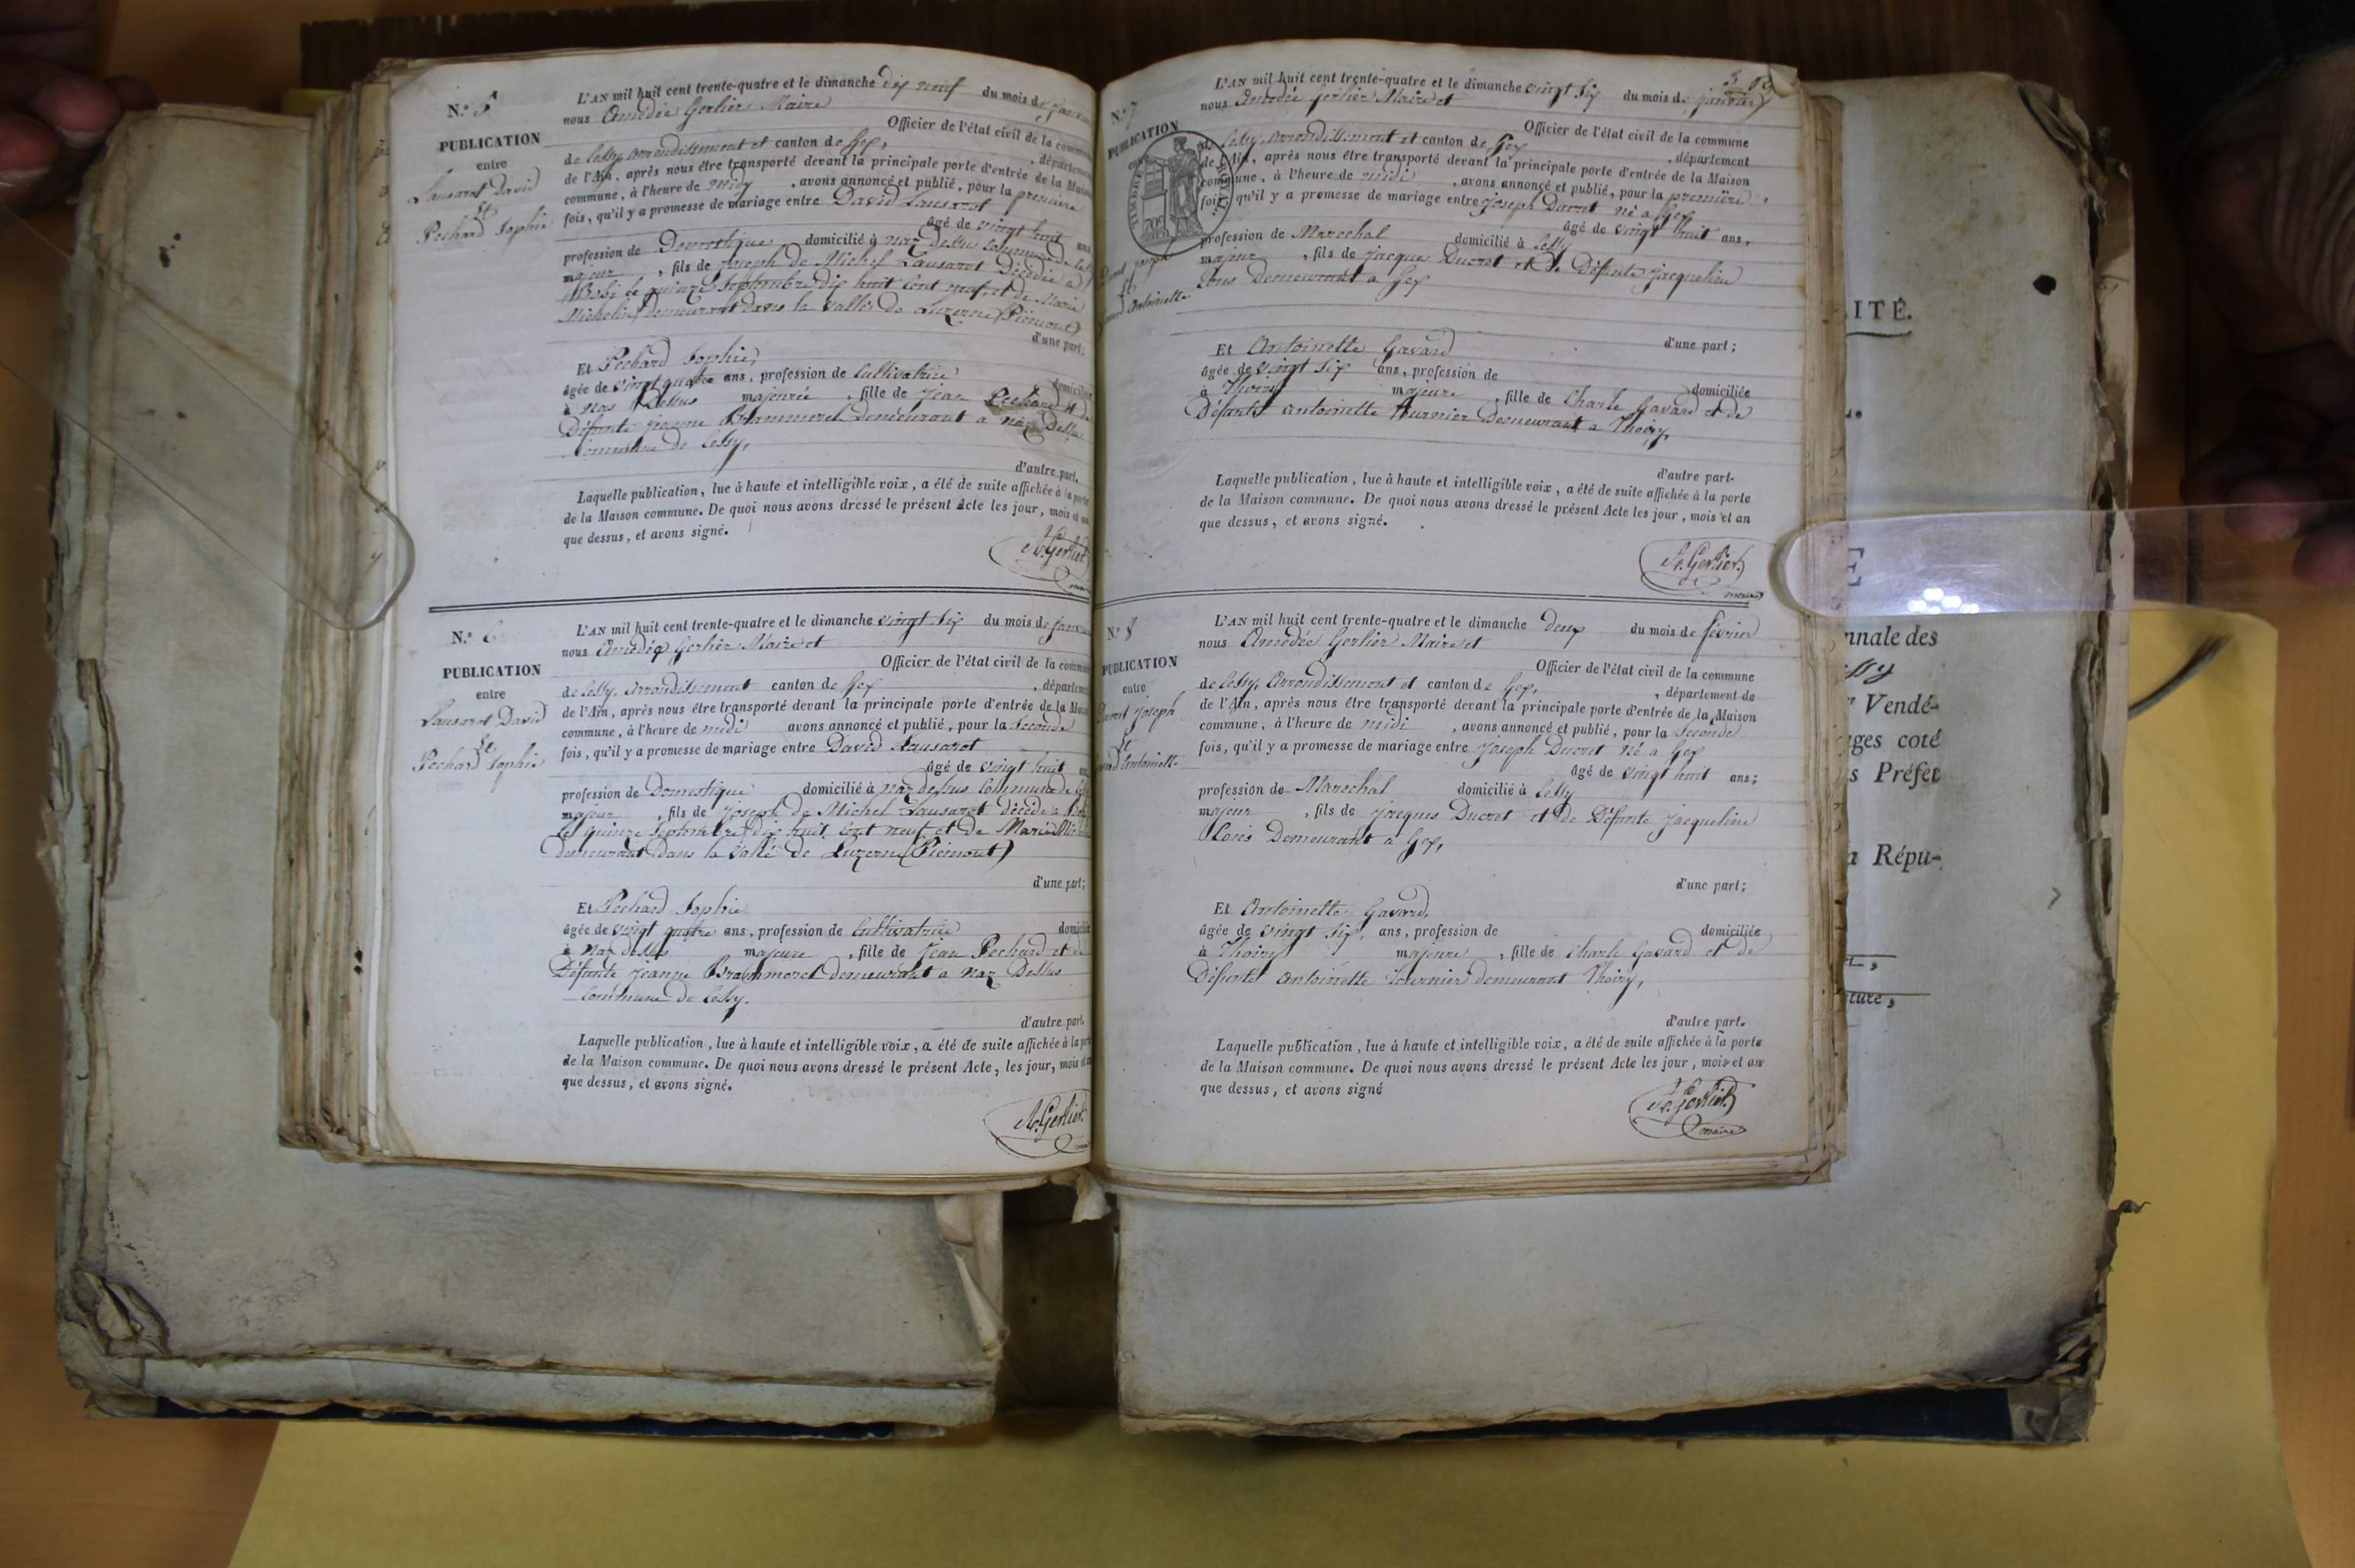 N.° 5
PUBLICATION
entre
Lausarot David
et
Pechard Sophie
L'AN mil huit cent trente-quatre et le dimanche dix neuf du mois de
nous Amédée Gerlier Maire
Officier de l'état civil de la
de Cessy, arrondissement et canton de Gex,
de l'Ain, après nous être transporté devant la principale porte d'entrée de la
commune, à l'heure de midy, avons annoncé et publié, pour la première
fois, qu'il y a promesse de mariage entre David Lausarot
âgé de vingt huit ans
profession de Domestique domicilié à naz dessus commune de
majeur, fils de joseph de Michel Lausarot Décédé a
Bobi le quinze Septembre dix huit cent neuf et de Marie
Michelin demeurant dans la vallée de Luzerne (Piémont)
d'une part;
Et Pechard Sophie,
âgée de vingt quatre ans, profession de Cultivatrice domiciliée
à naz Dessus majeure, fille de jean Pechard et de
Défunte jeanne Brammerel demeurant a naz Dessus
commune de Cessy,
d'autre part.
Laquelle publication, lue à haute et intelligible voix, a été de suite affichée à la porte
de la Maison commune. De quoi nous avons dressé le présent Acte les jour, mois et an
que dessus, et avons signé.
A. Gerlier
N.° 6
PUBLICATION
entre
Lausarot David
et
Pechard Sophie
L'AN mil huit cent trente-quatre et le dimanche vingt six du mois de
nous Amédée Gerlier Maire et
Officier de l'état civil de la
de Cessy, arrondissement canton de Gex,
de l'Ain, après nous être transporté devant la principale porte d'entrée de la
commune, à l'heure de midi avons annoncé et publié, pour la seconde
fois, qu'il y a promesse de mariage entre David Lausarot
âgé de vingt huit
profession de Domestique domicilié à naz dessus commune de
majeur, fils de joseph de Michel Lausarot décédé a
le quinze Septembre dix huit cent neuf et de Marie
demeurant dans la vallé de Luzerne (Piémont)
d'une part;
Et Pechard Sophie
âgée de vingt quatre ans, profession de Cultivatrice
à naz dessus majeure, fille de jean Pechard et de
Défunte jeanne Brammerel demeurant a naz Dessus
commune de Cessy.
d'autre part.
Laquelle publication, lue à haute et intelligible voix, a été de suite affichée à la
de la Maison commune. De quoi nous avons dressé le présent Acte, les jour, mois
que dessus, et avons signé.
A. Gerlier
N.° 7
PUBLICATION
joseph
et
Antoinette
L'AN mil huit cent trente-quatre et le dimanche vingt six du mois de janvier
nous Amédée Gerlier Maire et
Officier de l'état civil de la commune
de Cessy, arrondissement et canton de Gex, département
de l'Ain, après nous être transporté devant la principale porte d'entrée de la Maison
commune, à l'heure de midi, avons annoncé et publié, pour la première
fois, qu'il y a promesse de mariage entre joseph Ducret né a Gex
âgé de vingt huit ans,
profession de Marechal domicilié à Cessy
majeur, fils de jacques Ducret et de Défunte jacqueline
demeurant a Gex
d'une part;
Et Antoinette Gavard
âgée de vingt six ans, profession de domiciliée
à Thoiry majeure, fille de Charle Gavard et de
Défunte antoinette Demeurant a Thoiry,
d'autre part.
Laquelle publication, lue à haute et intelligible voix, a été de suite affichée à la porte
de la Maison commune. De quoi nous avons dressé le présent Acte les jour, mois et an
que dessus, et avons signé.
A. Gerlier
maire
N.° 8
PUBLICATION
entre
Ducret joseph
et
Antoinette
L'AN mil huit cent trente-quatre et le dimanche deux du mois de février
nous Amédée Gerlier Maire et
Officier de l'état civil de la commune
de Cessy, Arrondissement et canton de Gex, département de
de l'Ain, après nous être transporté devant la principale porte d'entrée de la Maison
commune, à l'heure de midi, avons annoncé et publié, pour la seconde
fois, qu'il y a promesse de mariage entre joseph Ducret né a Gex
âgé de vingt huit ans;
profession de Marechal domicilié à Cessy
majeur, fils de jacques Ducret et de Défunte jacqueline
Demeurant a Gex,
d'une part;
Et Antoinette Gavard,
âgée de vingt six, ans, profession de domiciliée
à Thoiry majeure, fille de Charle Gavard et de
Défunte antoinette Fournier demeurant Thoiry,
d'autre part.
Laquelle publication, lue à haute et intelligible voix, a été de suite affichée à la porte
de la Maison commune. De quoi nous avons dressé le présent Acte les jour, mois et an
que dessus, et avons signé
A. Gerlier
maire
ITÉ.
E
nnale des
Vendé-
ges coté
Préfet
Répu-